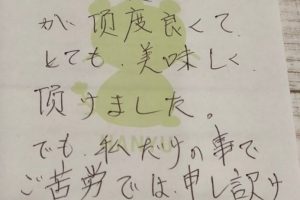 が頂度良くて、
とても、美味しく
頂けました。
でも、私だけの事で
ご苦労では、申し訳け